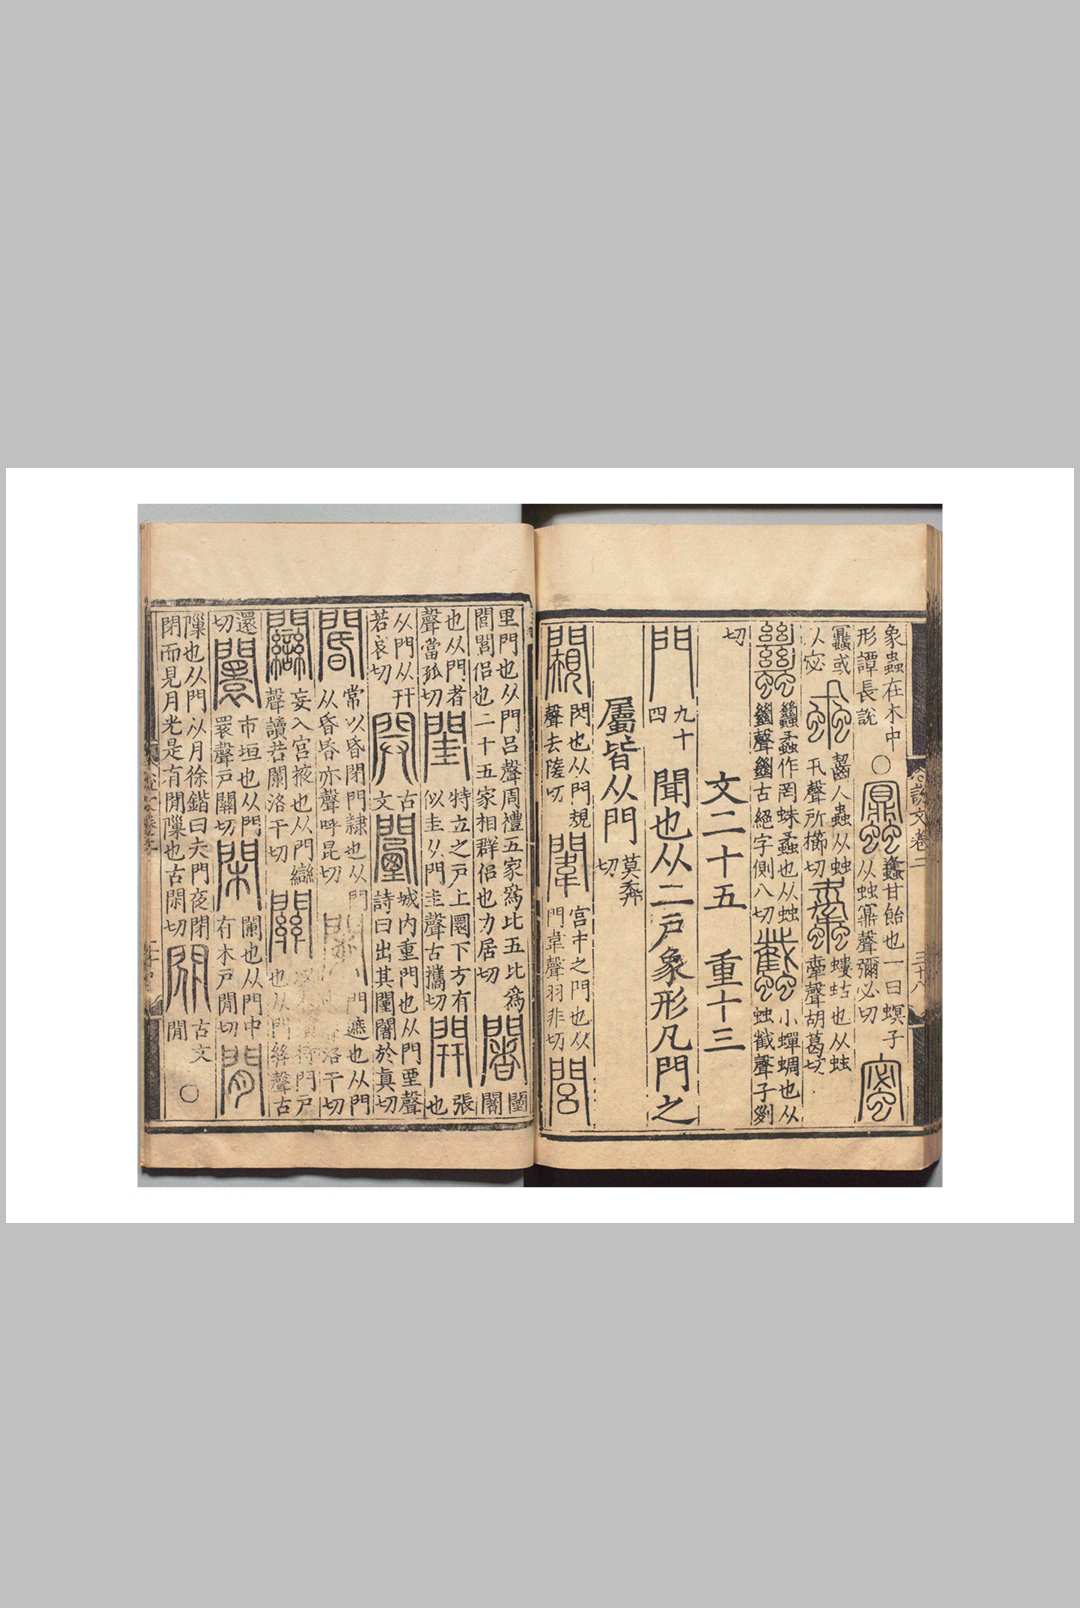 説文卷二
三十八
象蟲在木中
形譚長説
〇
蠠
蠭甘飴也一曰螟子
从䖵鼏聲彌必切
蜜
蠠或
从宓
蝨
齧人蟲从䖵
卂聲所櫛切
螻蛄也从䖵
聲胡葛切
蠿
蠿蟊作罔蛛蟊也从䖵
𢇍聲𢇍古絕字側八切
蠽
小蟬蜩也从
䖵截聲子列
切
文二十五 重十三
門
九十
四
聞也从二戶象形凡門之
屬皆从門
莫奔
切
闚
閃也从門規
聲去隓切
闈
宮中之門也从
門韋聲羽非切
閭
里門也从門吕聲周禮五家爲比五比爲
閭閭侣也二十五家相群侣也力居切
闍
闉
闍
也从門者
聲當孤切
閨
特立之戶上圜下方有
似圭从門圭聲古攜切
開
張
也
从門从幵
苦哀切
古
文
闉
城内重門也从門垔聲
詩曰出其闉闍於真切
閽
常以昏閉門隸也从門
从昏昏亦聲呼昆切
門遮也从門
洛干切
䦨
妄入宫掖也从門䜌
聲讀若闌洛干切
關
持門戶
也从門聲古
還
切
闤
市垣也从門
睘聲戶關切
閑
闌也从門中
有木戶閒切
閒
隟也从門从月徐鍇曰夫門夜閉
閉而見月光是有閒隟也古閑切
古文
閒
〇